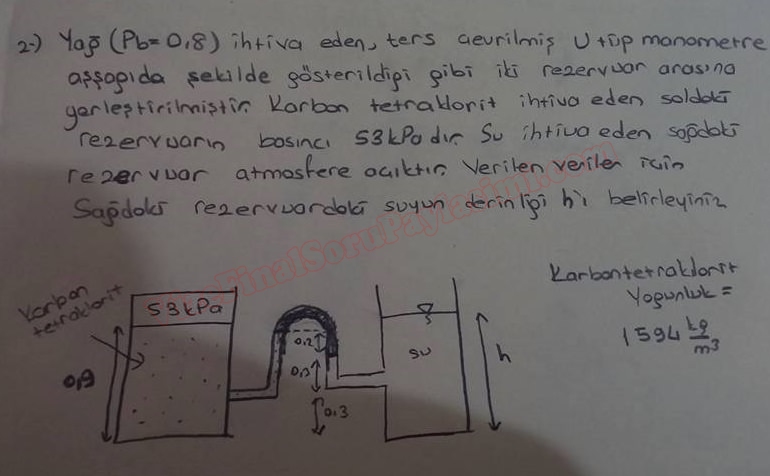 2-) Yağ (Pb=0,8) ihtiva eden, ters çevrilmiş U tüp manometre
aşşagıda şekilde gösterildigi gibi iki rezervuar arasına
yerleştirilmiştir. Karbon tetraklorit ihtiva eden soldaki
rezervuarın basıncı 53kPa dır. Su ihtiva eden sağdaki
rezervuar atmosfere açıktır. Verilen veriler için
Sağdaki rezervuardaki suyun derinligi h'ı belirleyiniz
Karbon
tetraklorit
53kPa
0,9
0,2
0,3
0.3
su
h
Karbontetraklorit
Yogunluk =
1594 kg/m3